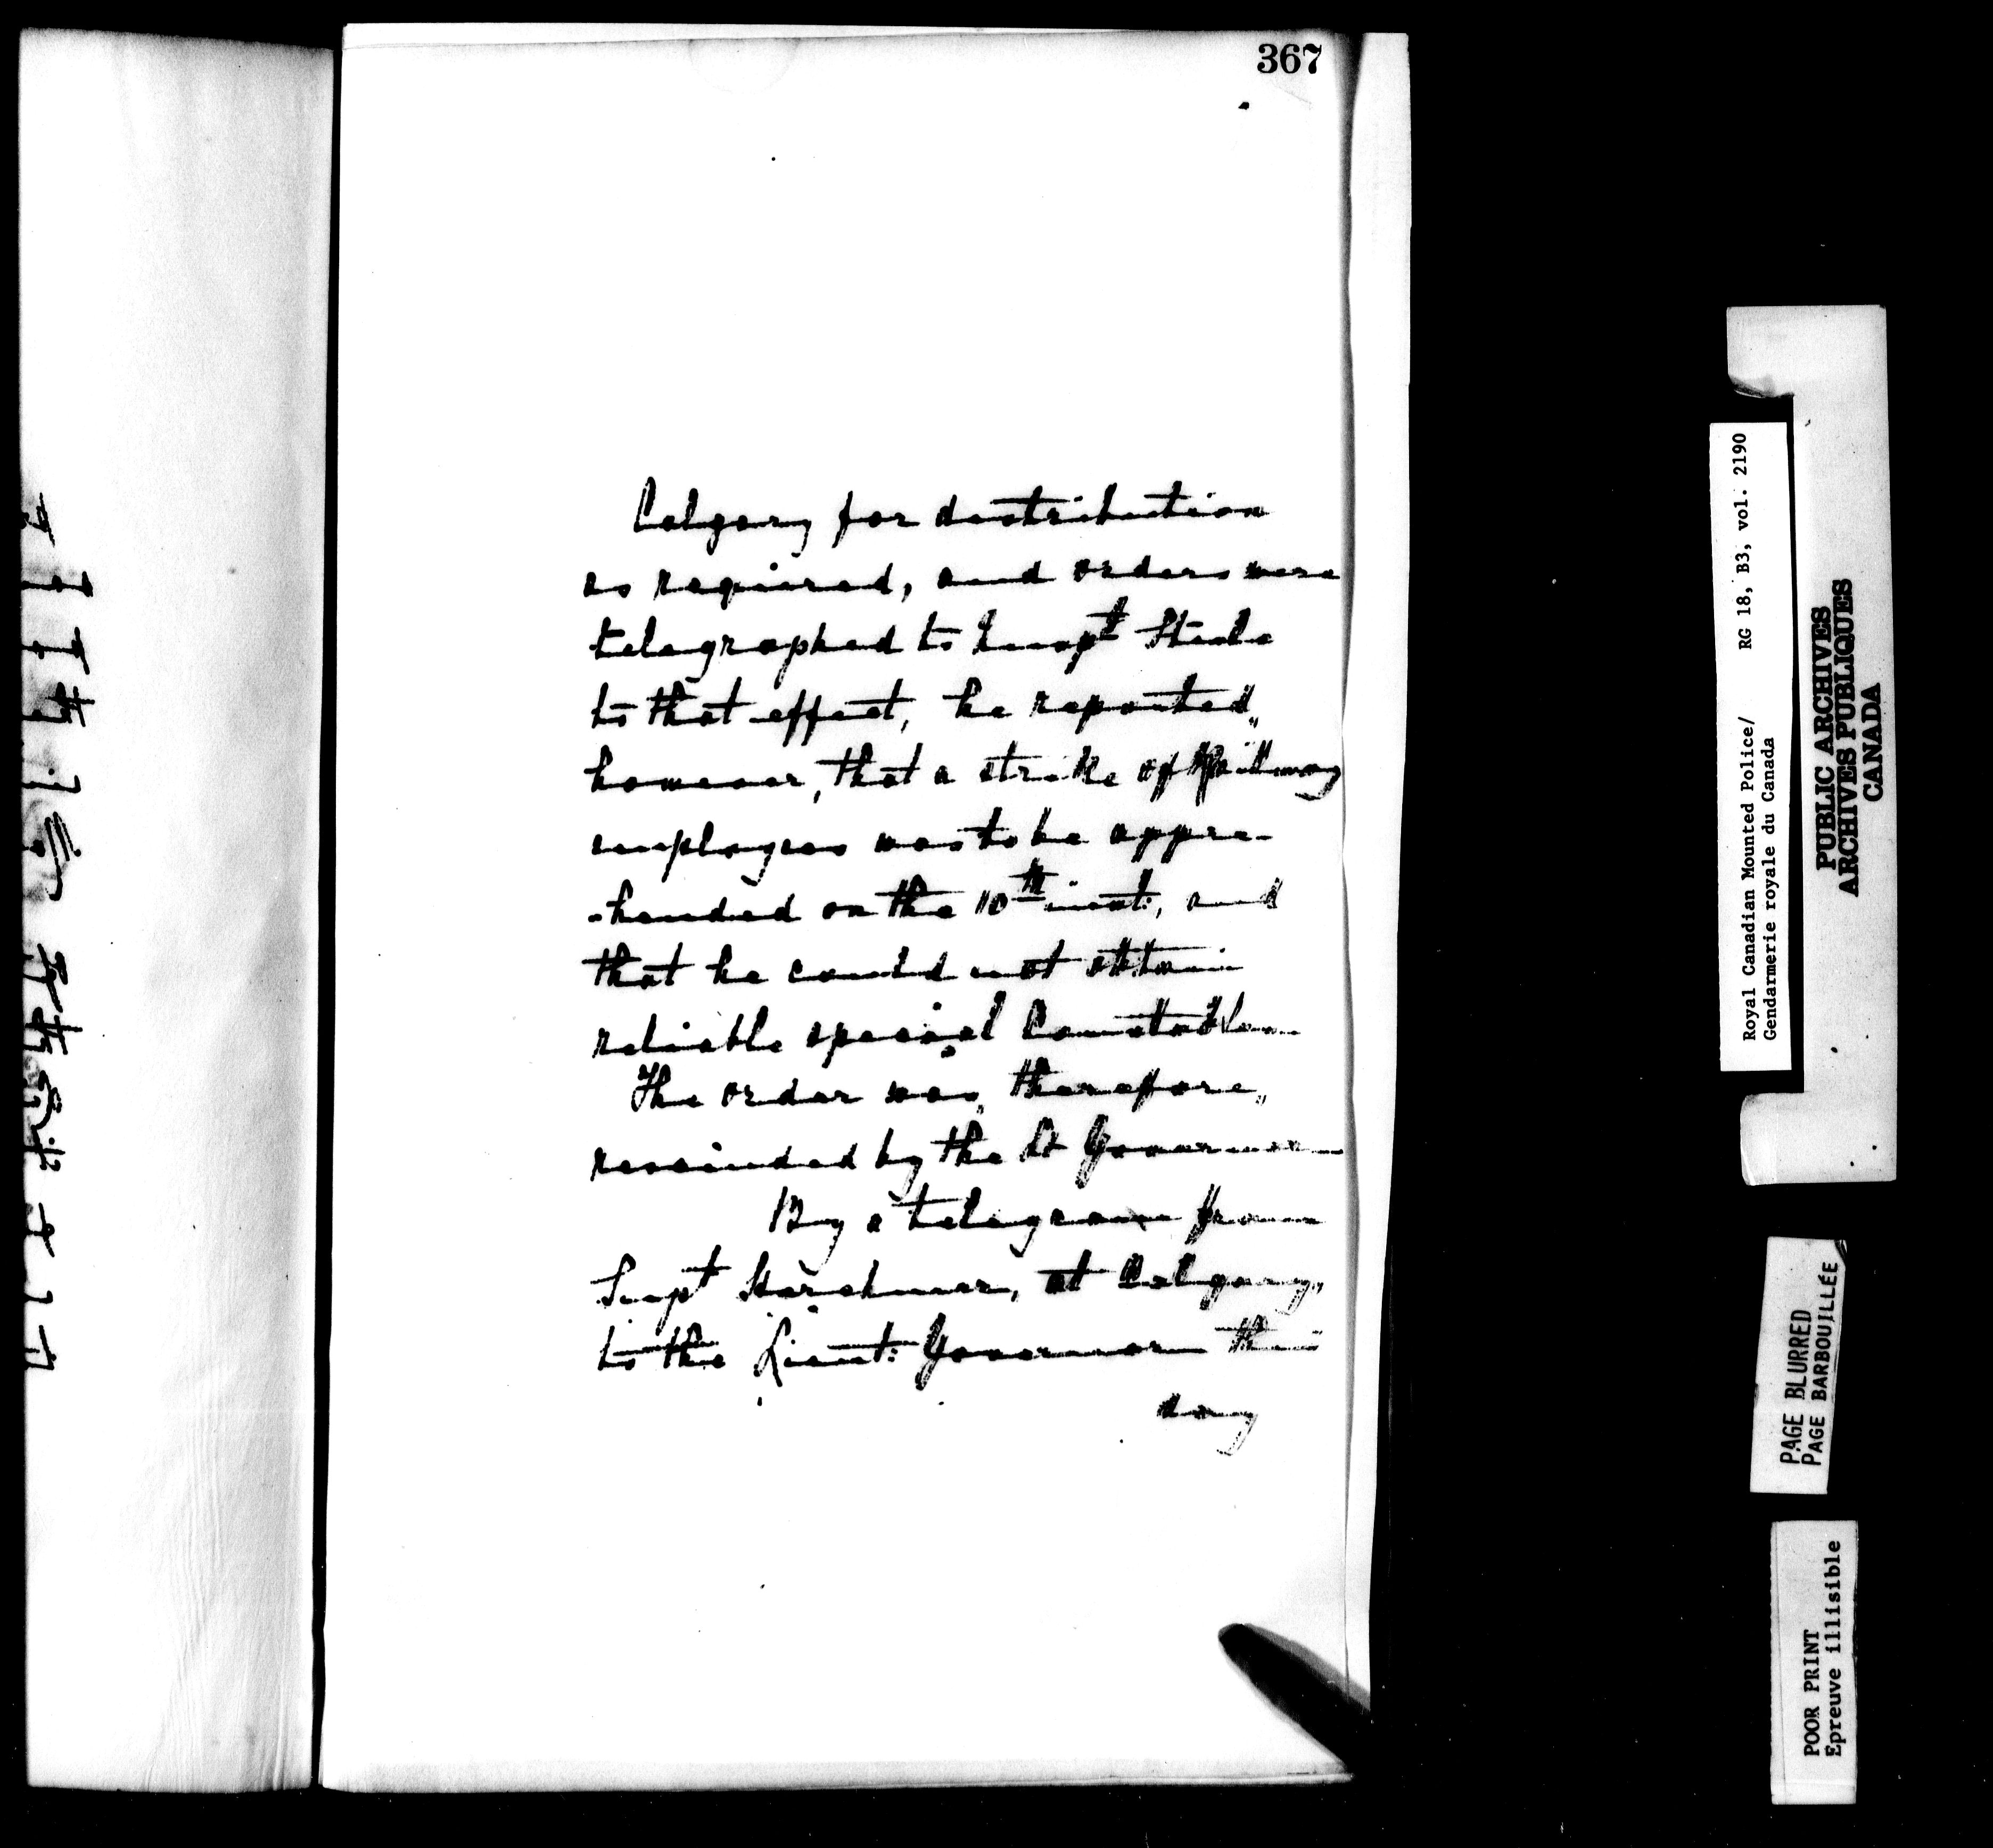 367
Calgary for distribution
as required, and orders were
telegraphed to Insp^t Steele
to that effect, he reported,
however, that a strike of Railway
employees was to be appre-
-hended on the 10th inst:, and
that he could not obtain
reliable special Constables
The order was, therefore,
rescinded by the Lt Governor
By a telegram from
Supt Herchmer, at Calgary,
to the Lieut: Governor this
day
Royal Canadian Mounted Police/ RG 18, B3, vol. 2190
Gendarmerie royale du Canada
PUBLIC ARCHIVES
ARCHIVES PUBLIQUES
CANADA
PAGE BLURRED
PAGE BARBOUILLÉE
POOR PRINT
Epreuve illisible